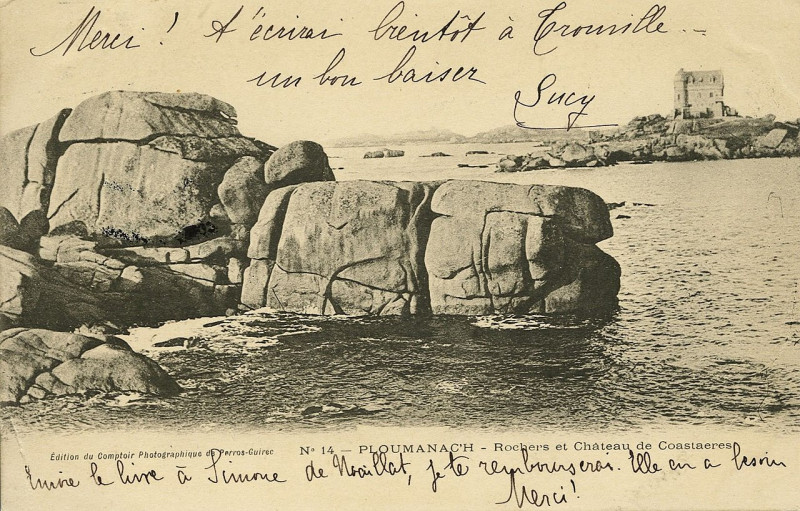 Merci! A t'écrirai bientôt à Trouville...
un bon baiser
Lucy
Édition du Comptoir Photographique de Perros-Guirec
No 14 – PLOUMANAC'H - Rochers et Château de Coastaeres
le livre à Simone de Noaillat, je te rembourserai. Elle en a besoin
Merci!